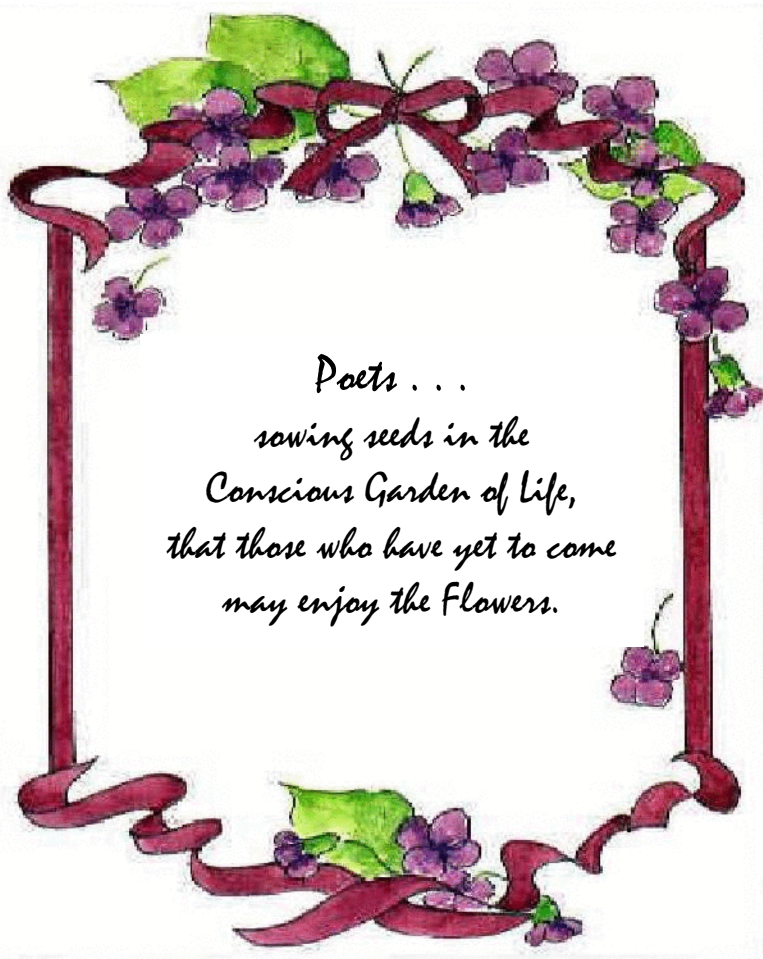 Poets . . .
sowing seeds in the
Conscious Garden of Life,
that those who have yet to come
may enjoy the Flowers.